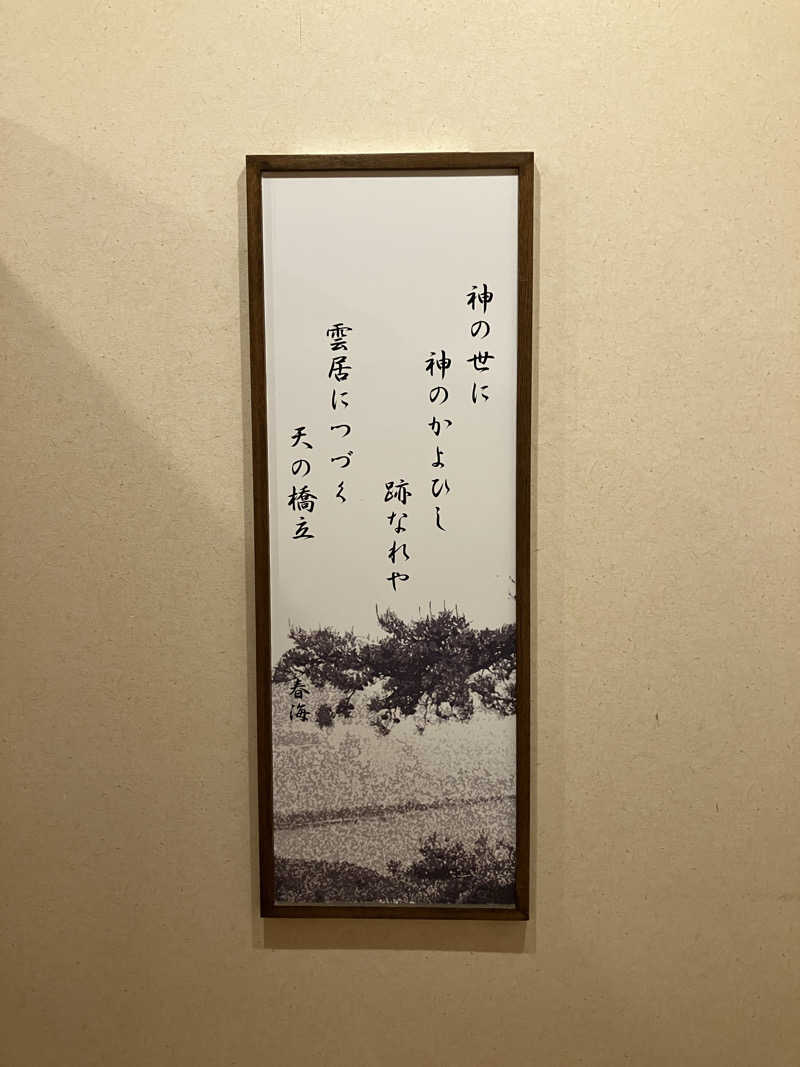 神の世に
神のかよひし
跡なれや
雲居につづく
天の橋立
春海